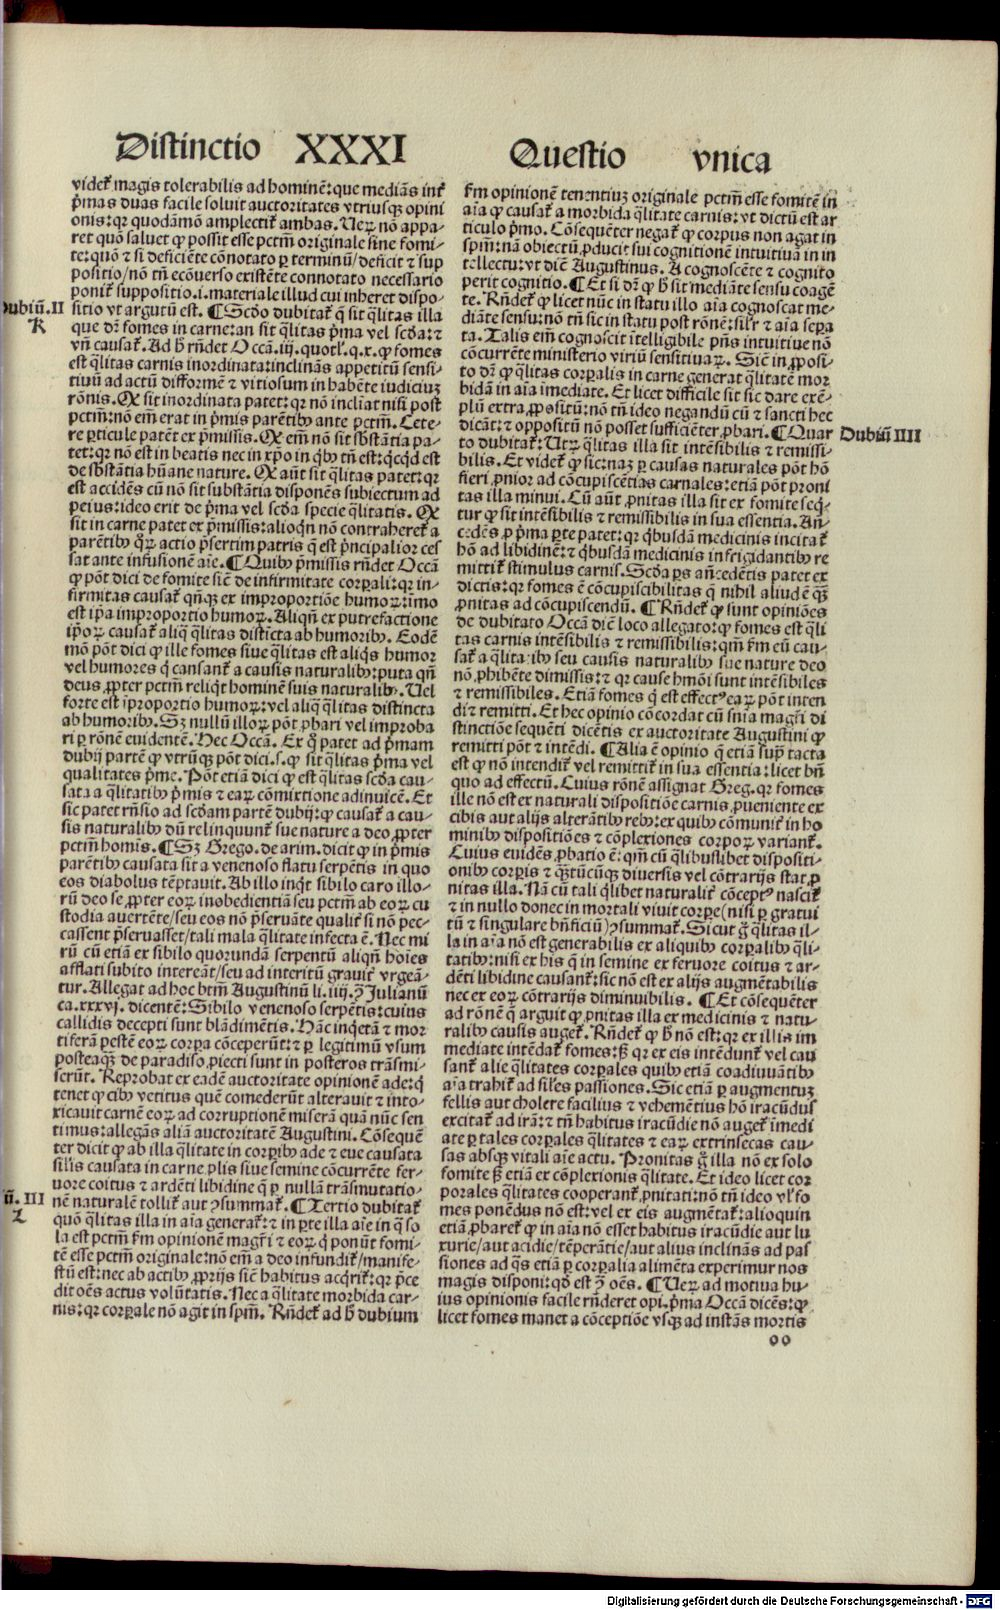 Distinctio XXXI Questio vnica
videt᷑ magis tolerabilis ad hominē: que mediās int᷑
p̄mas duas facile soluit auctoritates vtriusqꝫ opini
onis: qꝛ quodāmō amplectit᷑ ambas. Ueꝝ nō appa-
ret quō saluet ꝙ possit esse pctm̄ originale sine fomi-
te: quō ⁊ si deficiēte cōnotato ꝑ terminū/ deficit ⁊ sup
positio/ nō tn̄ ecōuerso existēte connotato necessario
ponit᷑ suppositio .i. materiale illud cui inheret dispo-
Dubiū. II
K
sitio vt argutū est. ¶ Scđo dubitat᷑ q̄ sit q̄litas illa
que dr̄ fomes in carne: an sit q̄litas p̄ma vel scđa: ⁊
vn̄ causat᷑. Ad h̄ rn̄det Occā. iij. quotl'. q. x. ꝙ fomes
est q̄litas carnis inordinata: inclināns appetitū sensi-
tiuū ad actū difformē ⁊ vitiosum in habēte iudiciuꝫ
rōnis. Qꝫ sit inordinata patet: qꝛ nō inclīat nisi post
pctm̄: nō em̄ erat in p̄mis parētibꝰ ante pctm̄. Cete-
re ꝑticule patēt ex p̄missis. Qꝫ em̄ nō sit sb̄stātia pa-
tet: qꝛ nō est in beatis nec in xp̄o in q̄bꝰ tn̄ est: q̄cq̄d est
de sb̄stātia hūane nature. Qꝫ aūt sit q̄litas patet: qꝛ
est accidēs cū nō sit substātia disponēs subiectum ad
peius: ideo erit de p̄ma vel scđa specie q̄litatis. Qꝫ
sit in carne patet ex p̄missis: alioq̄n nō contraheret᷑ a
parētibꝰ q̄ꝝ actio p̄sertim patris q̄ est p̄ncipalior ces
sat ante infusionē aīe. ¶ Quibꝰ p̄missis rn̄det Occā
ꝙ pōt dici de fomite sicē de infirmitate corꝑali: qꝛ in-
firmitas causat᷑ qn̄qꝫ ex improportiōe humoꝝ: imo
est ip̄a improportio humoꝝ. Aliqn̄ ex putrefactione
ip̄oꝝ causat᷑ aliq̄ q̄litas distīcta ab humoribꝰ. Eodē
mō pōt dici ꝙ ille fomes siue q̄litas est aliq̄s humor
vel humores q̄ cansant᷑ a causis naturalibꝰ: puta qn̄
deus ꝓpter pctm̄ reliq̄t hominē suis naturalibꝰ. Uel
forte est īproportio humoꝝ: vel aliq̄ q̄litas distincta
ab humoribꝰ. Sꝫ nullū illoꝝ pōt ꝓbari vel improba
ri ꝑ rōnē euidentē. Hec Occā. Ex q̄ patet ad p̄mam
dubij partē ꝙ vtrūqꝫ pōt dici. s. ꝙ sit q̄litas p̄ma vel
qualitates p̄me. Pōt etiā dici ꝙ est q̄litas scđa cau-
sata a q̄litatibꝰ p̄mis ⁊ eaꝝ cōmixtione adinuicē. Et
sic patet rn̄sio ad scđam partē dubij: ꝙ causat᷑ a cau-
sis naturalibꝰ dū relinquunt᷑ sue nature a deo ꝓpter
pctm̄ homis. ¶ Sꝫ Grego. de arim. dicit ꝙ in p̄mis
parētibꝰ causata sit a venenoso flatu serpētis in quo
eos diabolus tēptauit. Ab illo inq̄t sibilo caro illo-
rū deo se ꝓpter eoꝝ inobedientiā seu pctm̄ ab eoꝝ cu
stodia auertēte/ seu eos nō p̄seruāte qualit᷑ si nō pec-
cassent p̄seruasset/ tali mala q̄litate infecta ē. Nec mi
rū cū etiā ex sibilo quorundā serpentū aliqn̄ hoīes
afflati subito intereāt/ seu ad interitū grauit᷑ vrgeā-
tur. Allegat ad hoc btm̄ Augustinū li. iiij. ꝯ̄ Julianū
ca. xxxvi. dicentē: Sibilo venenoso serpētis: cuius
callidis decepti sunt blādimētis. Hāc inq̄etā ⁊ mor
tiferā pestē eoꝝ corꝑa cōceperūt: ⁊ ꝑ legitimū vsum
posteaqꝫ de paradiso ꝓiecti sunt in posteros trāsmi-
serūt. Reprobat ex eadē auctoritate opinionē ade: q̄
tenet ꝙ cibꝰ vetitus quē comederūt alterauit ⁊ into-
xicauit carnē eoꝝ ad corruptionē miserā quā nūc sen
timus: allegās aliā auctoritatē Augustini. Cōsequē
ter dicit ꝙ ab illa q̄litate in corꝑibꝰ ade ⁊ eue causata
silis causata in carne ꝓlis siue semine cōcurrēte fer-
uore coitus ⁊ ardēti libidine q̄ ꝑ nullā trāsmutatio-
Dubiū. III
L
nē naturalē tollit᷑ aut ꝯsummat᷑. ¶ Tertio dubitat᷑
quō q̄litas illa in aīa generat᷑: ⁊ in ꝑte illa aīe in q̄ so
la est pctm̄ fm opinionē magr̄i ⁊ eoꝝ q̄ ponūt fomi-
tē esse pctm̄ originale: nō em̄ a deo infundit᷑/ manife-
stū est: nec ab actibꝰ ꝓprijs sicē habitus acq̄rit᷑: qꝛ p̄ce
dit oēs actus volūtatis. Nec a q̄litate morbida car-
nis: qꝛ corꝑale nō agit in spm̄. Rn̄det᷑ ad h̄ dubium
fm opinionē tenentiuꝫ originale pctm̄ esse fomitē in
aīa ꝙ causat᷑ a morbida q̄litate carnis: vt dictū est ar
ticulo p̄mo. Cōsequēter negat᷑ ꝙ corpus non agat in
spm̄: nā obiectū ꝓducit sui cognitionē intuitiuā in in
tellectu: vt dicē Augustinus. A cognoscēte ⁊ cognito
perit cognitio. ¶ Et si dr̄ ꝙ h̄ sit mediāte sensu coagē
te. Rn̄det᷑ ꝙ licet nūc in statu illo aīa cognoscat me-
diāte sensu: nō tn̄ sic in statu post rōnē: sil'r ⁊ aīa seꝑa
ta. Talis em̄ cognoscit ītelligibile pn̄s intuitiue nō
cōcurrēte ministerio viriū sensitiuaꝝ. Sicē in ꝓposi-
to dr̄ ꝙ q̄litas corꝑalis in carne generat q̄litatē mor
bidā in aīa īmediate. Et licet difficile sit sic dare exē-
plū extra ꝓpositū: nō tn̄ ideo negandū cū ⁊ sancti hec
Dubiū IIII
dicāt: ⁊ oppositū nō posset sufficiēter ꝓbari. ¶ Quar
to dubitat᷑: Utꝝ q̄litas illa sit intēsibilis ⁊ remissi-
bilis. Et videt᷑ ꝙ sic: naꝫ ꝑ causas naturales pōt hō
fieri ꝓnior ad cōcupiscētias carnales: etiā pōt proni
tas illa minui. Cū aūt ꝓnitas illa sit ex fomite seq̄-
tur ꝙ sit intēsibilis ⁊ remissibilis in sua essentia. Añ-
cedēs ꝓ p̄ma ꝑte patet: qꝛ q̄busdā medicinis incitat᷑
hō ad libidinē: ⁊ q̄busdā medicinis infrigidantibꝰ re
mittit᷑ stimulus carnis. Scđa ꝑs añcedētis patet ex
dictis: qꝛ fomes ē cōcupiscibilitas q̄ nihil aliud ē q̄ꝫ
ꝓnitas ad cōcupiscendū. ¶ Rn̄det᷑ ꝙ sunt opiniōes
de dubitato Occā dicē loco allegato: ꝙ fomes est q̄li
tas carnis intēsibilis ⁊ remissibilis: qm̄ fm eū cau-
sat᷑ a q̄litatibꝰ seu causis naturalibꝰ sue nature deo
nō ꝓhibēte dimissis: ⁊ qꝛ cause hmōi sunt intēsibiles
⁊ remissibiles. Etiā fomes q̄ est effectꝰ eaꝝ pōt inten
di ⁊ remitti. Et hec opinio cōcordat cū snīa magr̄i di
stinctiōe sequēti dicētis ex auctoritate Augustini ꝙ
remitti pōt ⁊ intēdi. ¶ Alia ē opinio q̄ etiā supra tacta
est ꝙ nō intendit᷑ vel remittit᷑ in sua essentia: licet bn̄
quo ad effectū. Cuius rōnē assignat Greg. qꝛ fomes
ille nō est ex naturali dispositiōe carnis ꝓueniente ex
cibis aut alijs alterātibꝰ rebꝰ: ex quibꝰ cōmunit᷑ in ho
minibꝰ dispositiōes ⁊ cōplexiones corpoꝝ variant᷑.
Cuius euidēs ꝓbatio ē: qm̄ cū q̄libuslibet dispositi-
onibꝰ corꝑis ⁊ q̄ꝫtūcūqꝫ diuersis vel cōtrarijs stat ꝓ
nitas illa. Nā cū tali q̄libet naturalit᷑ cōceptꝰ nascit᷑
⁊ in nullo donec in mortali viuit corꝑe (nisi ꝑ gratui
tū ⁊ singulare bn̄ficiū) ꝯsummat᷑. Sicut g̊ q̄litas il-
la in aīa nō est generabilis ex aliquibꝰ corꝑalibꝰ q̄li-
tatibꝰ: nisi ex his q̄ in semine ex feruore coitus ⁊ ar-
dēti libidine causant᷑: sic nō est ex alijs augmētabilis
nec ex eoꝝ cōtrarijs diminuibilis. ¶ Et cōsequēter
ad rōnē q̄ arguit ꝙ ꝓnitas illa ex medicinis ⁊ natu-
ralibꝰ causis auget᷑. Rn̄det᷑ ꝙ h̄ nō est: qꝛ ex illis im
mediate intēdat᷑ fomes: sꝫ qꝛ ex eis intēdunt᷑ vel cau
sant᷑ alie q̄litates corꝑales quibꝰ etiā coadiuuātibꝰ
aīa trahit᷑ ad siles passiones. Sic etiā ꝑ augmentuꝫ
fellis aut cholere facilius ⁊ vehemētius hō iracūdus
excitat᷑ ad irā: ⁊ tn̄ habitus iracūdie nō auget᷑ īmedi
ate ꝑ tales corꝑales q̄litates ⁊ eaꝝ extrinsecas cau-
sas absqꝫ vitali aīe actu. Pronitas g̊ illa nō ex solo
fomite sꝫ etiā ex cōplexionis q̄litate. Et ideo licet cor
porales q̄litates cooperant᷑ ꝓnitati: nō tn̄ ideo vl's fo
mes ponēdus nō est: vel ex eis augmētat᷑: alioquin
etiā ꝓbaret᷑ ꝙ in aīa nō esset habitus iracūdie aut lu
xurie/ aut acidie/ tēperātie/ aut alius inclinās ad pas
siones ad q̄s etiā ꝑ corꝑalia alimēta experimur nos
magis disponi: qđ est ꝯ̄ oēs. ¶ Ueꝝ ad motiua hu-
ius opinionis facile rn̄deret opi. p̄ma Occā dicēs: ꝙ
licet fomes manet a cōceptiōe vsqꝫ ad instās mortis
oo
Digitalisierung gefördert durch die Deutsche Forschungsgemeinschaft - DFG